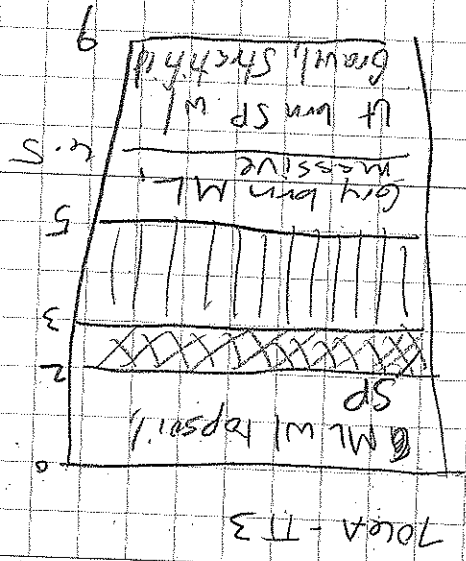 TT3
0
ML w/ topsoil,
SP
2
3
5
Gry brn ML,
massive
6.5
Lt brn SP w/
Gravel, Stratified
9